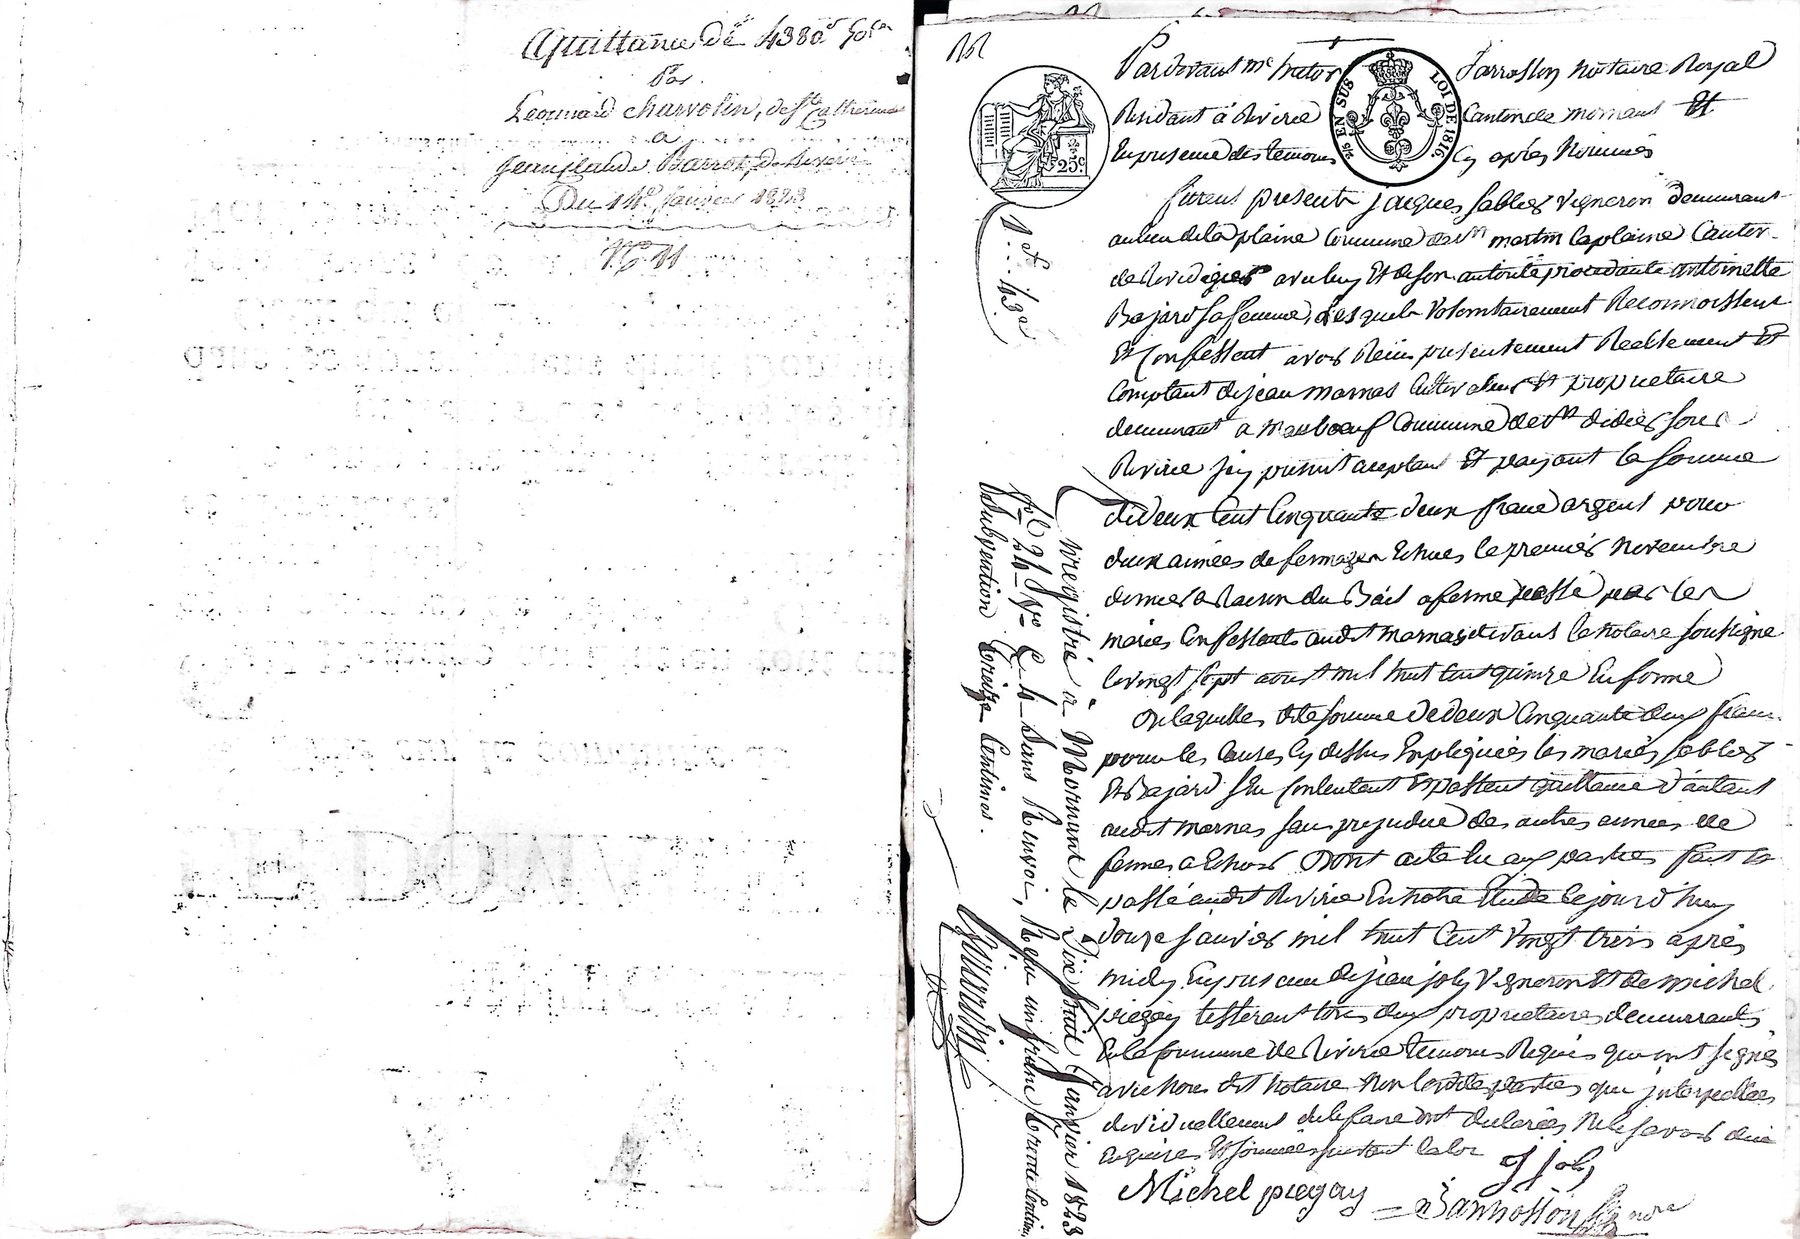 Quittance de 4380f 50c
Par
Leonnard charvolin, de Ste Catherine
a
Jean Claude Barrot de Riverie
Du 14 Janvier 1823
No 11
Pardevant me Jarrosson notaire Royal
Residant à Riverie Canton de mornant Et
En presence des temoins Cy après Nommés
25c.
EN SUS
LOI DE 1816
furent presents jacques fables vigneron demeurant
au lieu de la plaine Commune de St martin la plaine Canton
de Rivedegier avec luy Et de son autorité procedante antoinette
Bajard sa femme, Lesquels volontairement Reconnoissent
Et Confessent avoir Reçu presentement Reellement Et
Comptant de jean marnas Cultivateur Et proprietaire
demeurant a Commune de St didier sous
Riverie Jcy present acceptant Et payant la somme
de deux Cent Cinquante deux franc argent pour
deux années de fermages Echues le premier Novembre
dernier a Raison du Bail a ferme passé par les
mariés Confessants audit marnas devant le Notaire soussigné
le vingt sept aoust mil huit Cent quinze En forme
De laquelle dite somme de deux Cinquante deux franc
pour les Causes Cy dessus Expliquées les mariés fables
Et Bajard s'En Contentent Et passent quittance d'autant
audit marnas sans prejudice des autres années de
fermes a Echoir Dont acte lu aux parties fait Et
passé audit Riverie En notre Etude Cejourd'huy
douze janvier mil huit Cent vingt trois après
midy En presence de jean joly vigneron Et de michel
piegay tisserant tous deux proprietaires demeurants
En la Commune de Riverie temoins Requis qui ont signés
avec Nous dit Notaire Non lesdites parties qui interpellées
de le faire ont declarées Ne le savoir de ce
Enquises Et sommées suivant la loi
Michel piegay
J joly
Jarrosson
nore
1.et 43c
Enregistré à Mornant le Dix huit Janvier 1823
fol 24 Vo C 4 Sans Renvoi, Reçu un franc trente Centimes
Subvention treize Centimes.